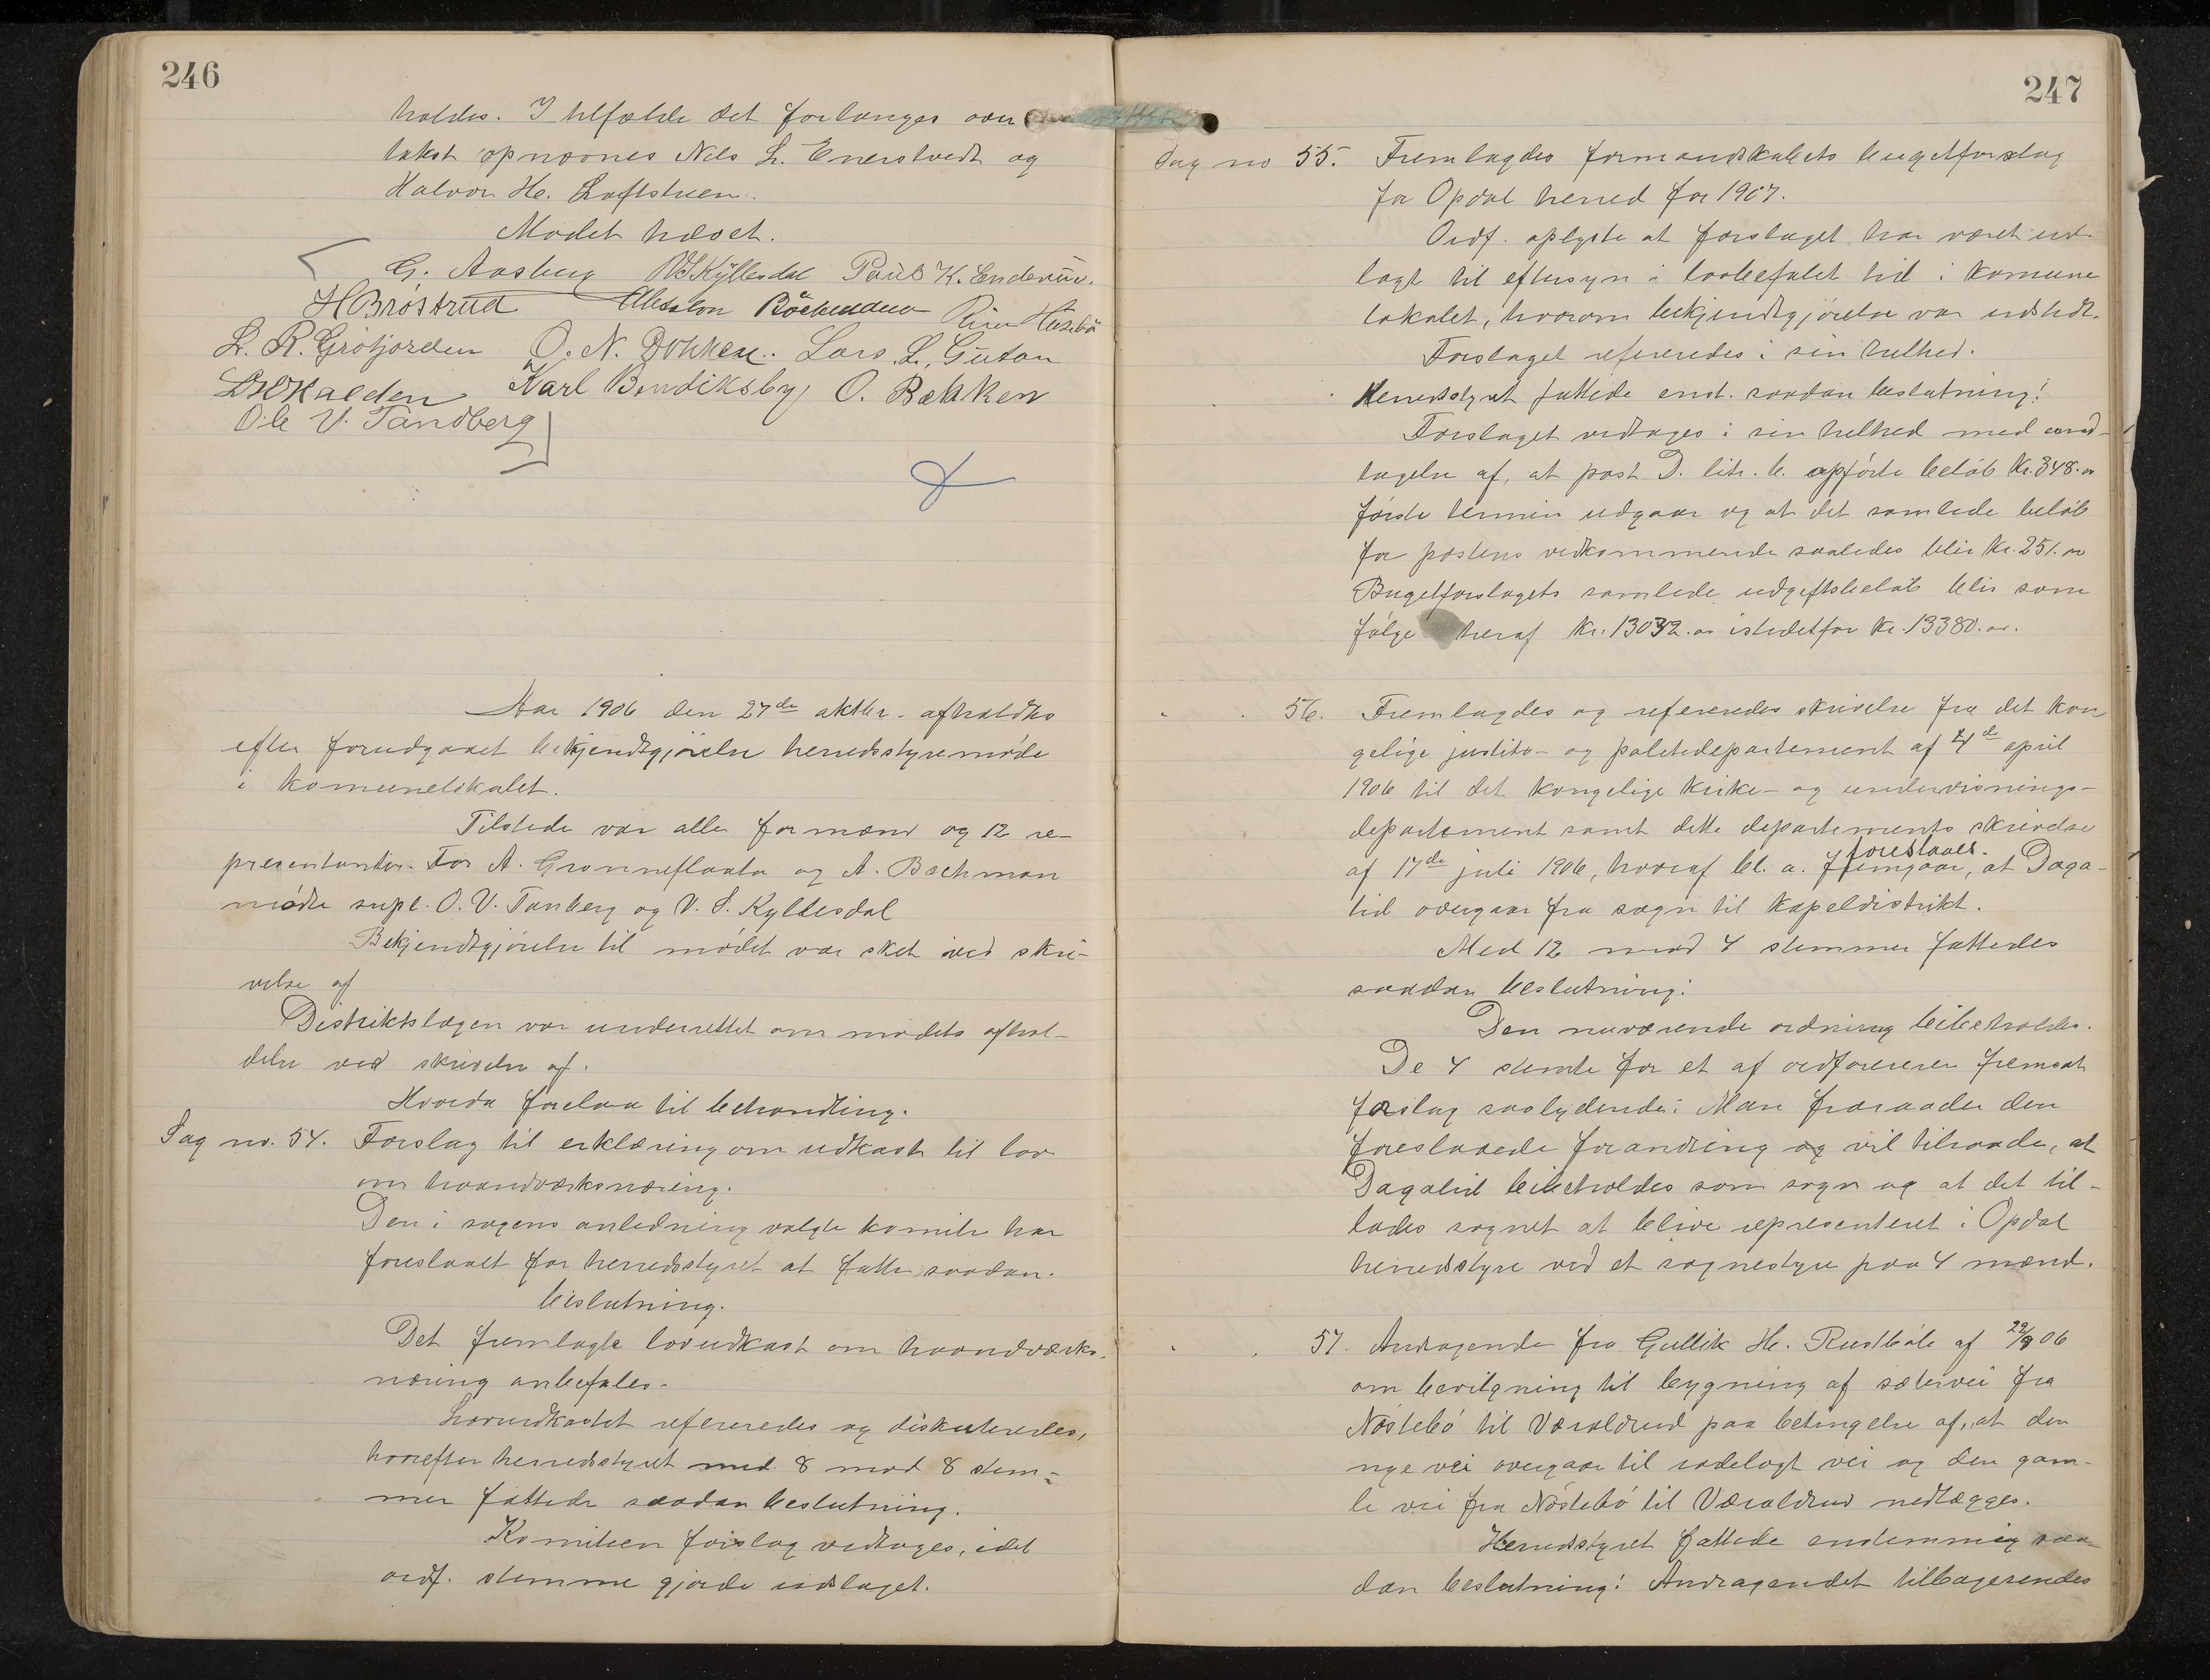 246
holdes. I tilfælde det forlanges over
takst opnævnes Nils L. Enerstvedt og
Halvor H. Loftstuen.
Mødet hævet.
G. Aasberg N S Kyllesdal Paul K. Enderud.
H Bröstrud
L. R. Grötjorden O. N. Dokken. Lars L. Guton
Halden Karl Bendiksby, O. Bakken
Ole V. Tandberg
Aar 1906 den 27de oktbr. afholdtes
efter forudgaaet bekjendtgjörelse herredsstyremöde
i komunelokalet.
Tilstede var alle formænd og 12 re-
presentanter. For A. Grønneflaata og A. Bachman
mødte supl. O. V. Tanberg og N. S. Kyllesdal
Bekjendtgjörelse til mødet var sket ved skri-
velse af
Distriktslægen var underrettet om mødets afhol-
delse ved skrivelse af.
Hvorda forelaa til behandling.
Sag no. 54. Forslag til erklæring om udkast til lov
om haandværksnæring.
Den i sagens anledning valgte komite har
foreslaaet for herredsstyret at fatte saadan
beslutning.
Det fremlagte lovudkast om haandværks-
næring anbefales.
Lovudkastet refereredes og diskuteredes,
hvorefter herredsstyret med 8 mod 8 stem-
mer fattede saadan beslutning.
Komiteen forslag vedtages, idet
ordf. stemme gjorde udslaget.
247
Sag no 55. Fremlagdes formandskabets bugetforslag
for Opdal herred for 1907.
Ordf. oplyste at forslaget har været ud-
lagt til eftersyn i lovbefalet tid i komune
lokalet, hvorom bekjendtgjörelse var udstedt.
Forslaget refereredes i sin helhed.
Herredsstyret fattede enst. saadan beslutning:
Forslaget vedtages i sin helhed med und-
tagelse af, at post D. litr. b. opförte belöb Kr. 348.00
förste termin udgaar og at det samlede belöb
for postens vedkommende saaledes blir Kr. 251.00
Bugetforslagets samlede udgiftsbelöb blir som
fölge heraf Kr. 13032.00 istedetfor Kr. 13380.00.
56. Fremlagdes og refereredes skrivelse fra det kon
gelige justits- og politidepartement af 4de april
1906 til det kongelige kirke- og undervisnings-
departement samt dette departements skrivelse
foreslaaes.
af 17de juli 1906, hvoraf bl. a. fremgaar, at Daga-
lid overgaar fra sogn til kapeldistrikt.
Med 12 mod 4 stemmer fattedes
saadan beslutning:
Den nuværende ordning bibeholdes.
De 4 stemte for et af ordföreren fremsat
forslag saalydende: Man fraraader den
foreslaaede forandring og vil tilraade, at
Dagalid bibeholdes som sogn og at det til-
lades sognet at blive representeret i Opdal
herredsstyre ved et sognestyre paa 4 mænd.
57. Andragende fra Gullik H. Rustböle af 22/9 06
om bevilgning til bygning af sætervei fra
Nöstebö til Væraldrud paa betingelse af, at den
nye vei overgaar til rodelagt vei og den gam-
le vei fra Nöstebö til Væraldrud nedlægges.
Herredsstyret fattede enstemmig saa-
dan beslutning: Andragendet tilbagesendes